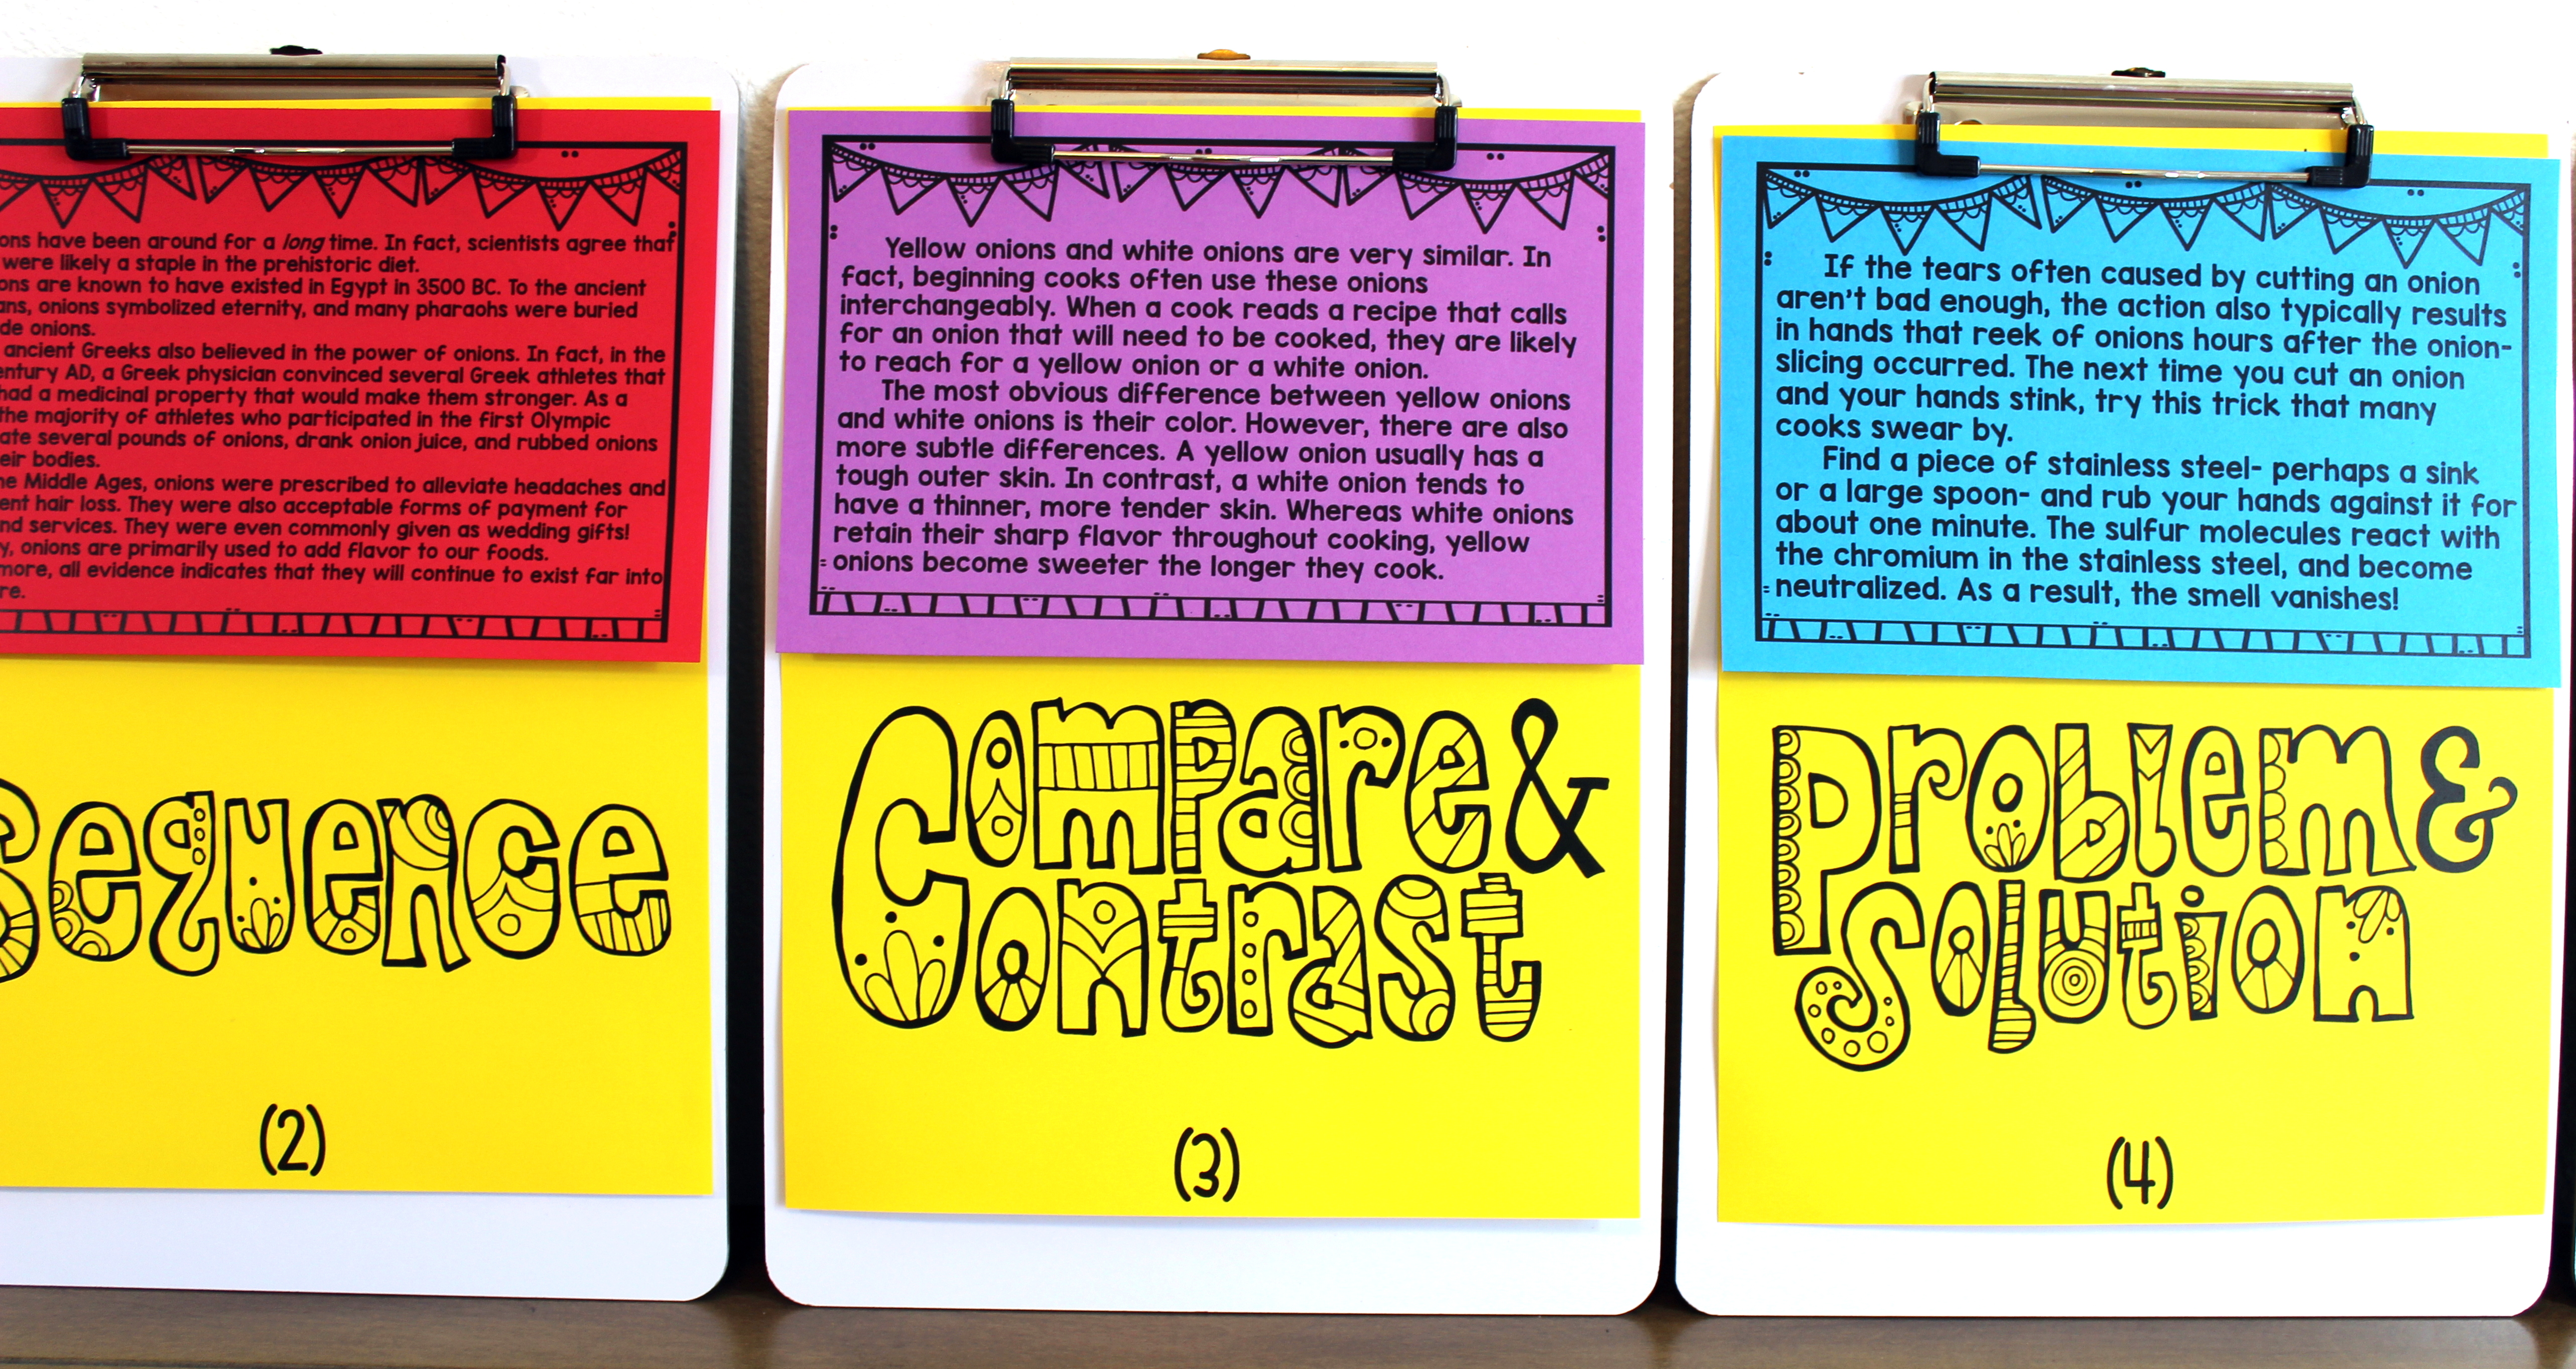 ons have been around for a long time. In fact, scientists agree that
were likely a staple in the prehistoric diet.
ons are known to have existed in Egypt in 3500 BC. To the ancient
ans, onions symbolized eternity, and many pharaohs were buried
de onions.
ancient Greeks also believed in the power of onions. In fact, in the
entury AD, a Greek physician convinced several Greek athletes that
had a medicinal property that would make them stronger. As a
the majority of athletes who participated in the first Olympic
ate several pounds of onions, drank onion juice, and rubbed onions
eir bodies.
he Middle Ages, onions were prescribed to alleviate headaches and
ent hair loss. They were also acceptable forms of payment for
nd services. They were even commonly given as wedding gifts!
y, onions are primarily used to add flavor to our foods.
more, all evidence indicates that they will continue to exist far into
re.
Sequence
(2)
Yellow onions and white onions are very similar. In
fact, beginning cooks often use these onions
interchangeably. When a cook reads a recipe that calls
for an onion that will need to be cooked, they are likely
to reach for a yellow onion or a white onion.
The most obvious difference between yellow onions
and white onions is their color. However, there are also
more subtle differences. A yellow onion usually has a
tough outer skin. In contrast, a white onion tends to
have a thinner, more tender skin. Whereas white onions
retain their sharp flavor throughout cooking, yellow
onions become sweeter the longer they cook.
Compare &
Contrast
(3)
If the tears often caused by cutting an onion
aren't bad enough, the action also typically results
in hands that reek of onions hours after the onion-
slicing occurred. The next time you cut an onion
and your hands stink, try this trick that many
cooks swear by.
Find a piece of stainless steel- perhaps a sink
or a large spoon- and rub your hands against it for
about one minute. The sulfur molecules react with
the chromium in the stainless steel, and become
neutralized. As a result, the smell vanishes!
Problem &
Solution
(4)